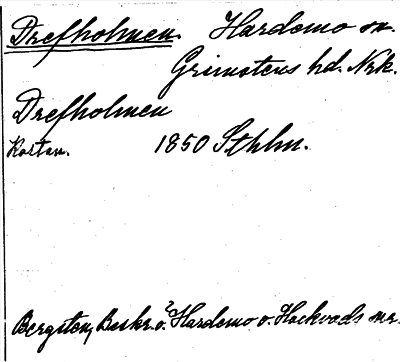 Drefholmen. Hardemo sn.
Grimstens hd. Nrk.
Drefholmen
Kartan. 1850 Sthlm.
Bergsten, Beskr. ö. Hardemo o. Hackvads snr.